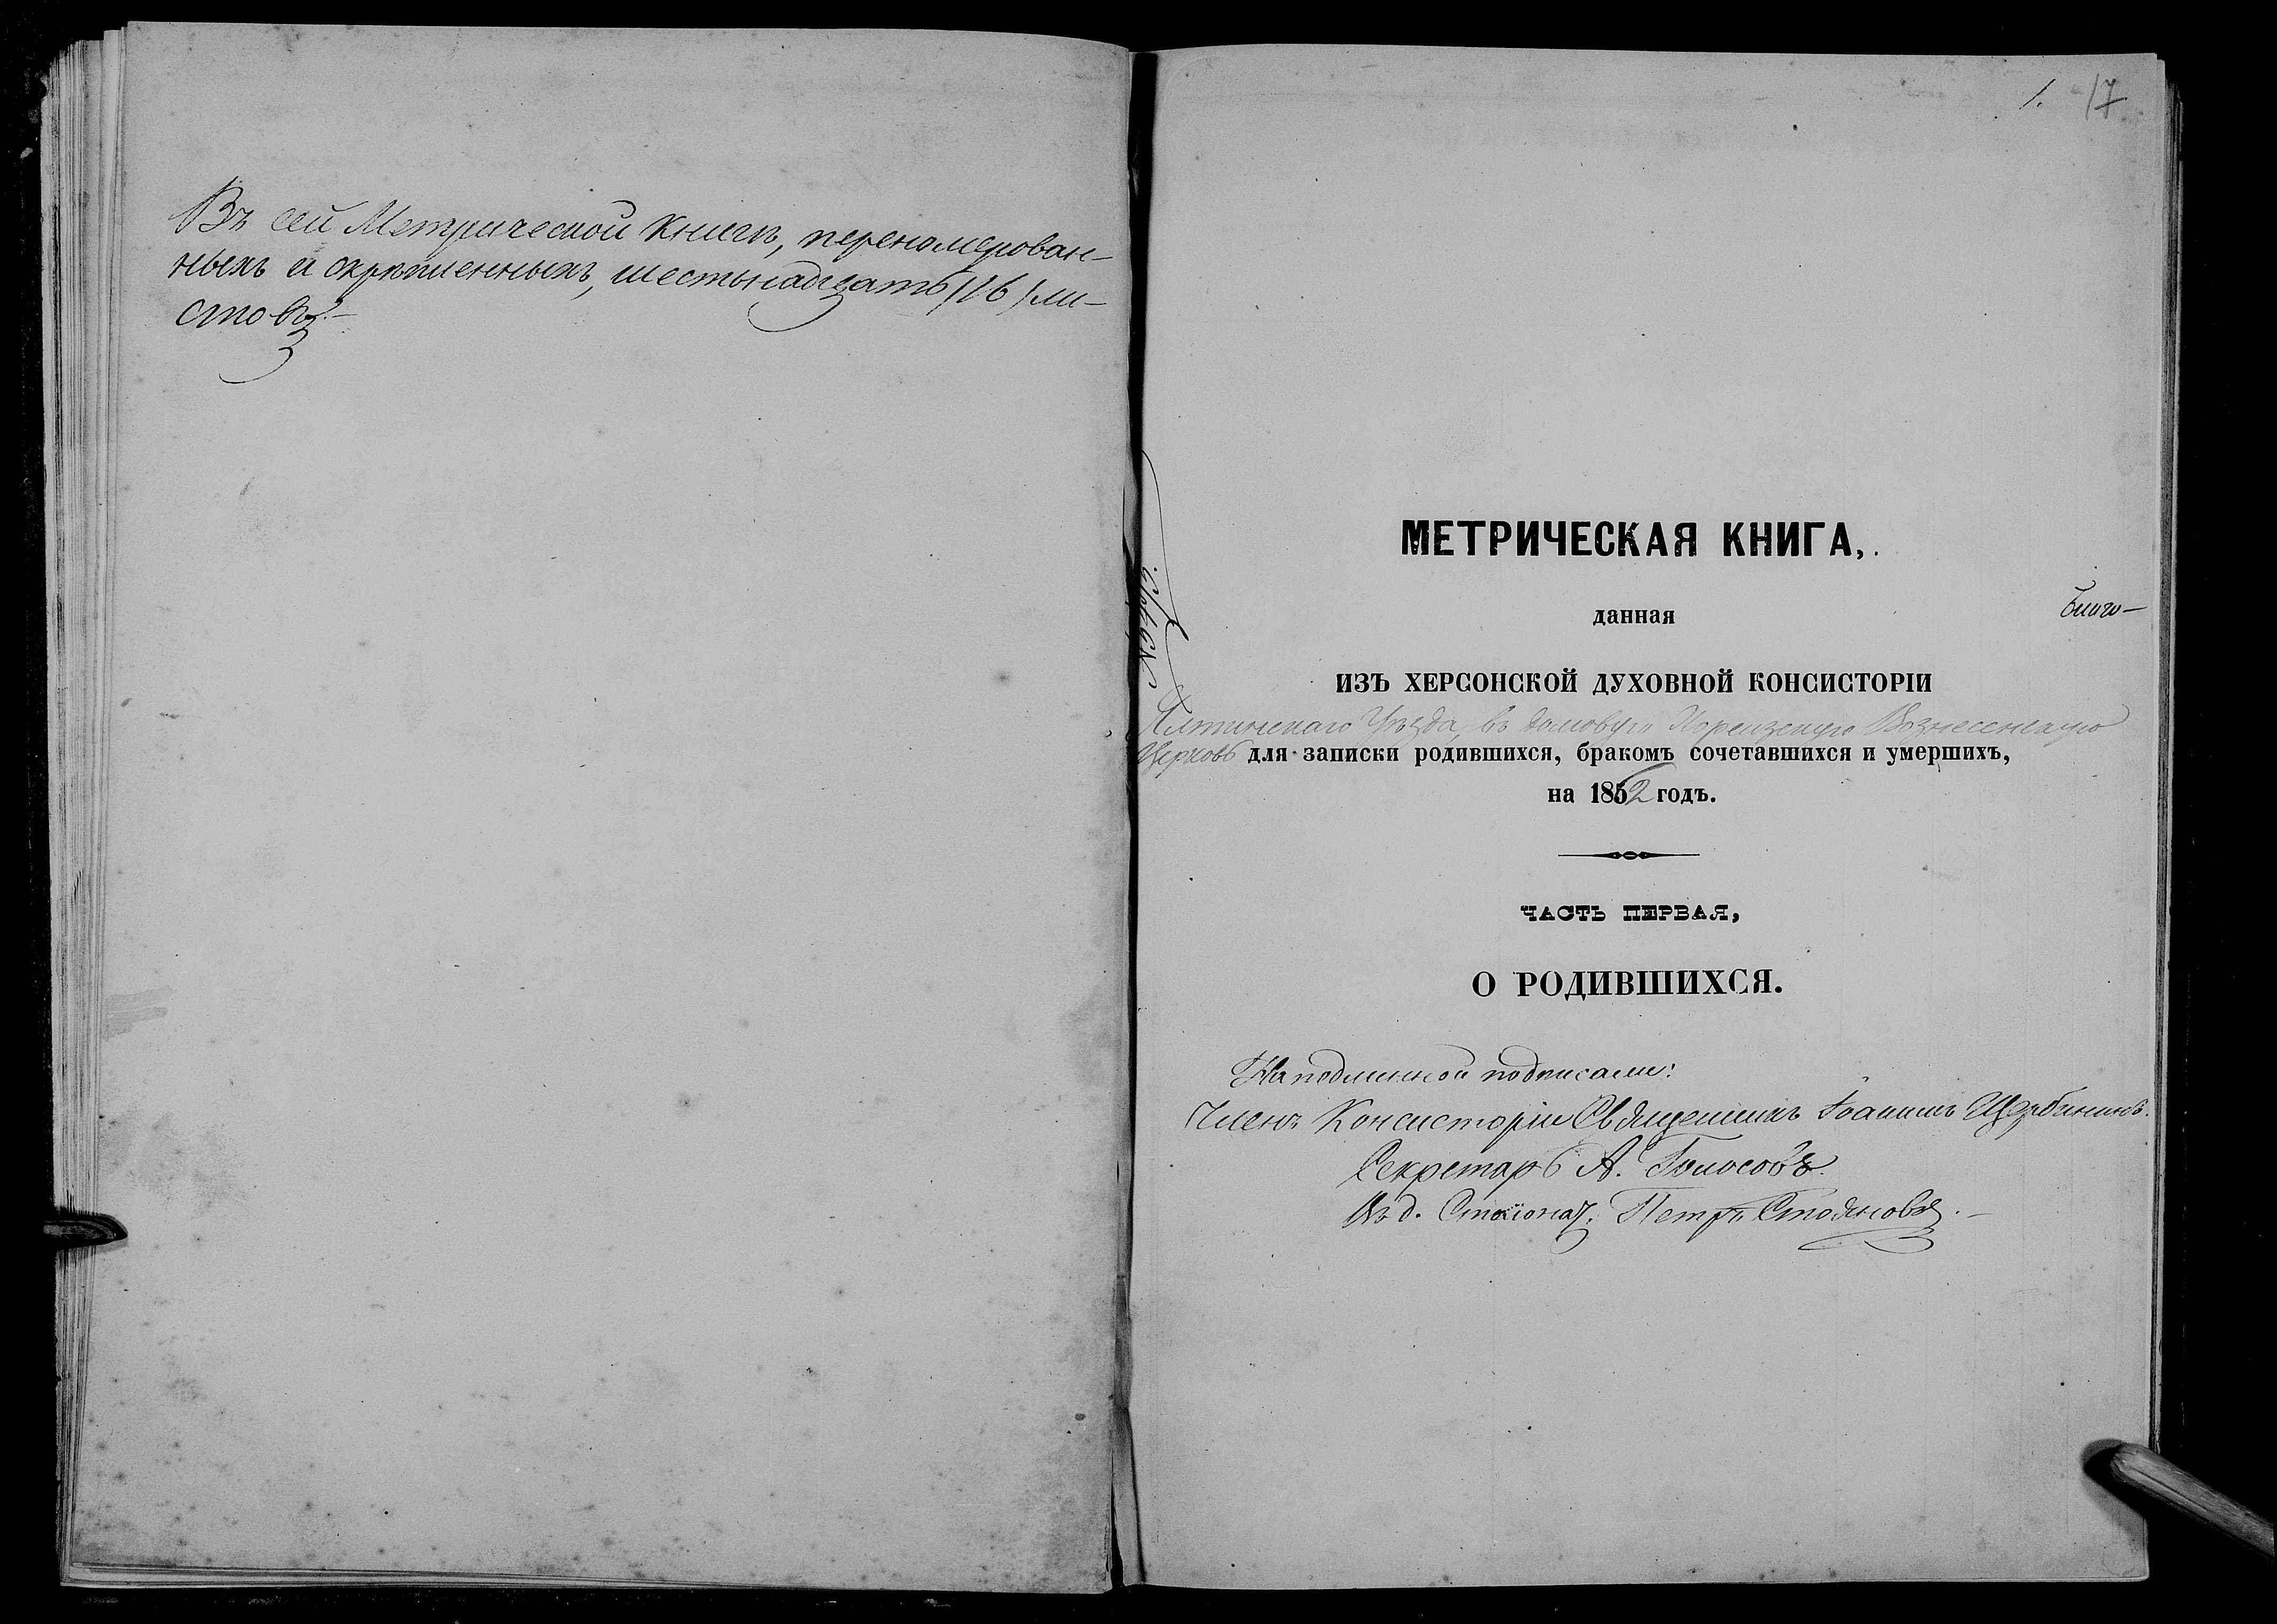 Въ сей Метрической книгѣ, переномерован-
ныхъ и скрѣпленныхъ, шестьнадцать /16/ ли-
стовъ.–
1. 17
МЕТРИЧЕСКАЯ КНИГА,
данная
Благо–
ИЗЪ ХЕРСОНСКОЙ ДУХОВНОЙ КОНСИСТОРІИ
Ялтинскаго Уѣзда, въ домовую Кореизскую Вознесенскую
Церковь для записки родившихся, бракомъ сочетавшихся и умершихъ,
на 1852 годъ.
ЧАСТЬ ПЕРВАЯ,
О РОДИВШИХСЯ.
На подлинной подписали:
Членъ Консисторіи Священникъ Іоаннъ Щербининъ.
Секретарь А. Голосовъ.
Въ д. Столонач. Петръ Стояновъ.–